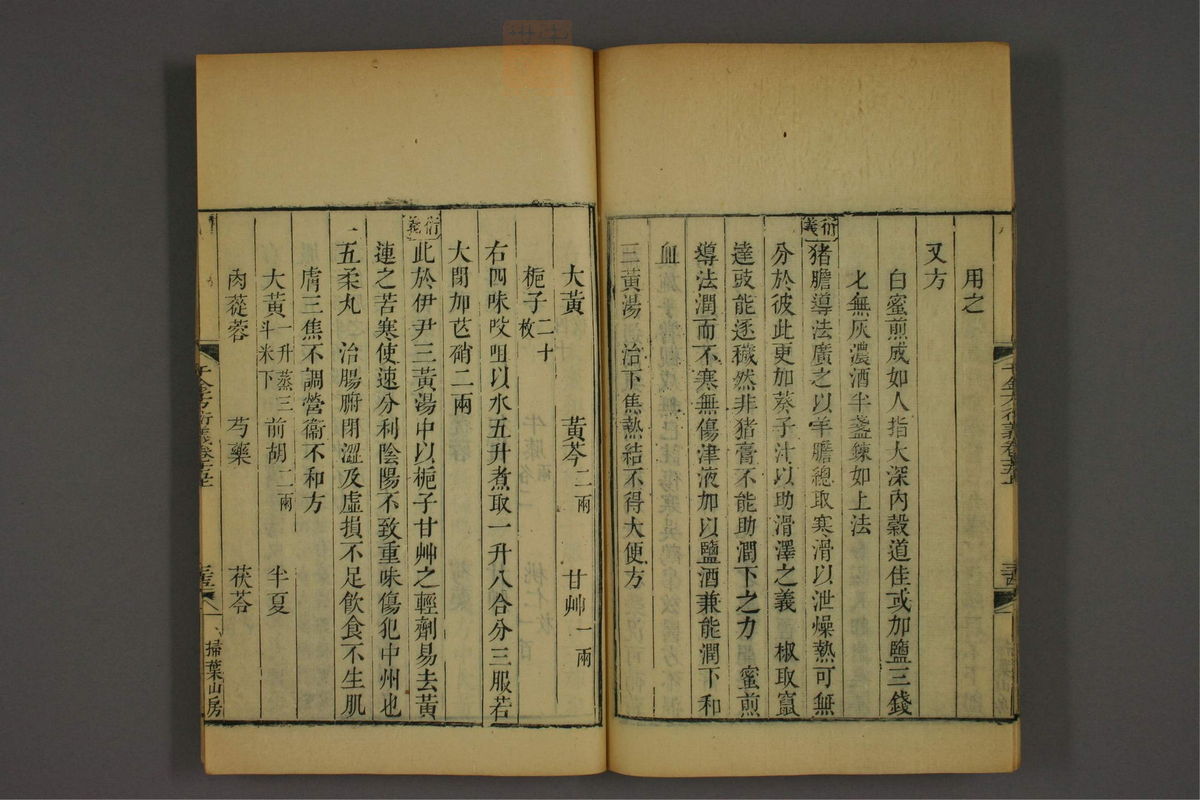 用之
又方
白蜜煎成如人指大深內穀道佳或加鹽三錢
匕無灰濃酒半盞鍊如上法
衍義
猪膽導法廣之以羊膽總取寒滑以泄燥熱可無
分於彼此更加葵子汁以助滑澤之義 椒取竄
達豉能逐穢然非猪膏不能助潤下之力 蜜煎
導法潤而不寒無傷津液加以鹽酒兼能潤下和
血
三黃湯 治下焦熱結不得大便方
大黃 黃芩二兩 甘艸一兩
梔子二十枚
右四味㕮咀以水五升煮取一升八合分三服若
大閉加芒硝二兩
衍義
此於伊尹三黃湯中以梔子甘艸之輕劑易去黃
連之苦寒使速分利陰陽不致重味傷犯中州也
五柔丸 治腸腑閉澀及虛損不足飲食不生肌
膚三焦不調營衞不和方
大黃一升蒸三斗米下 前胡二兩 半夏
肉蓯蓉 芍藥 茯苓
千金方衍義卷十五
掃葉山房